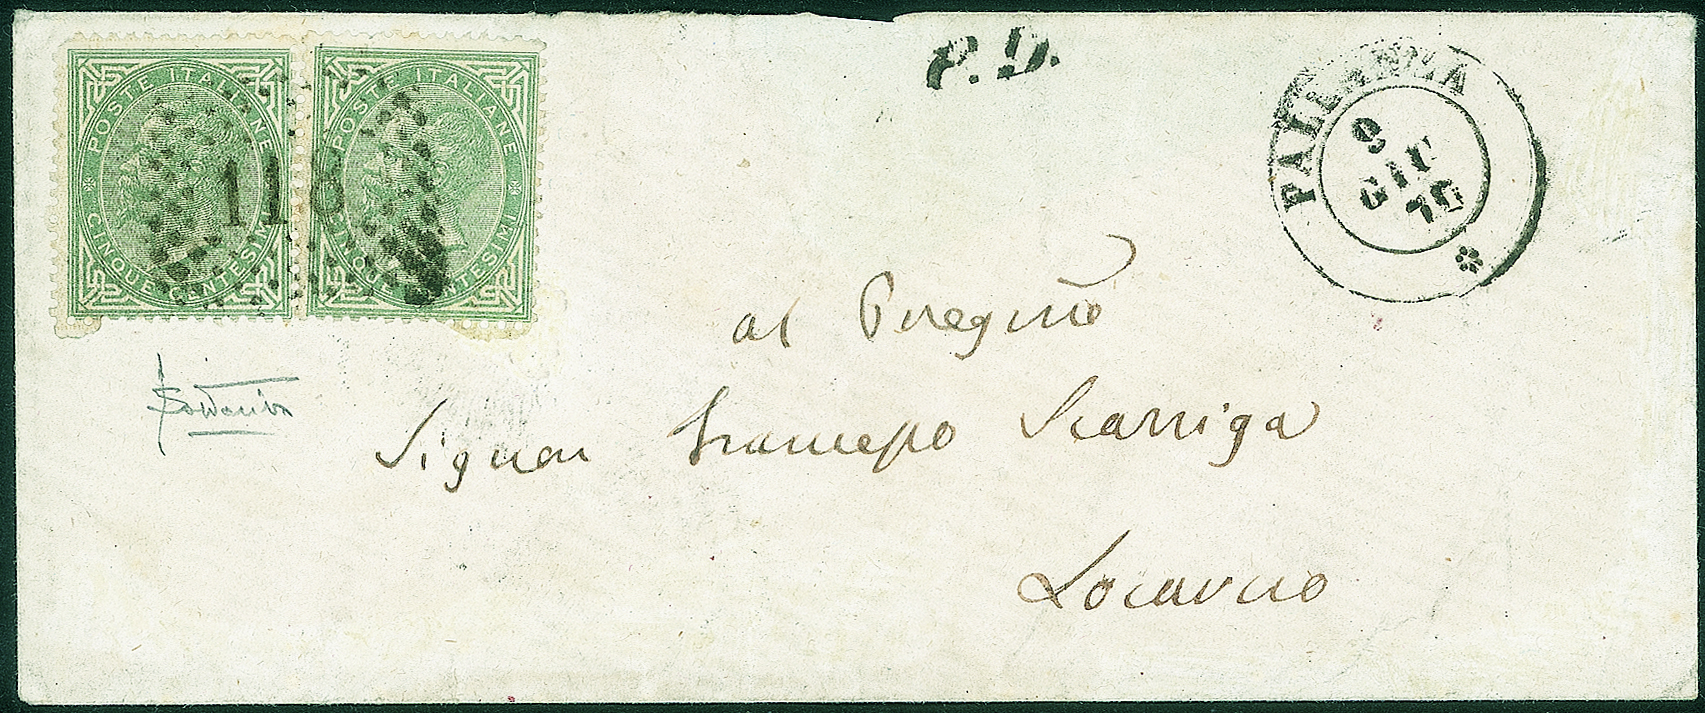 POSTE ITALIANE
CINQUE CENTESIMI
POSTE ITALIANE
CINQUE CENTESIMI
118
P.D.
PALLANZA
9
GIU
70
al Preg
Signor Francesco Scarriga
Locarno